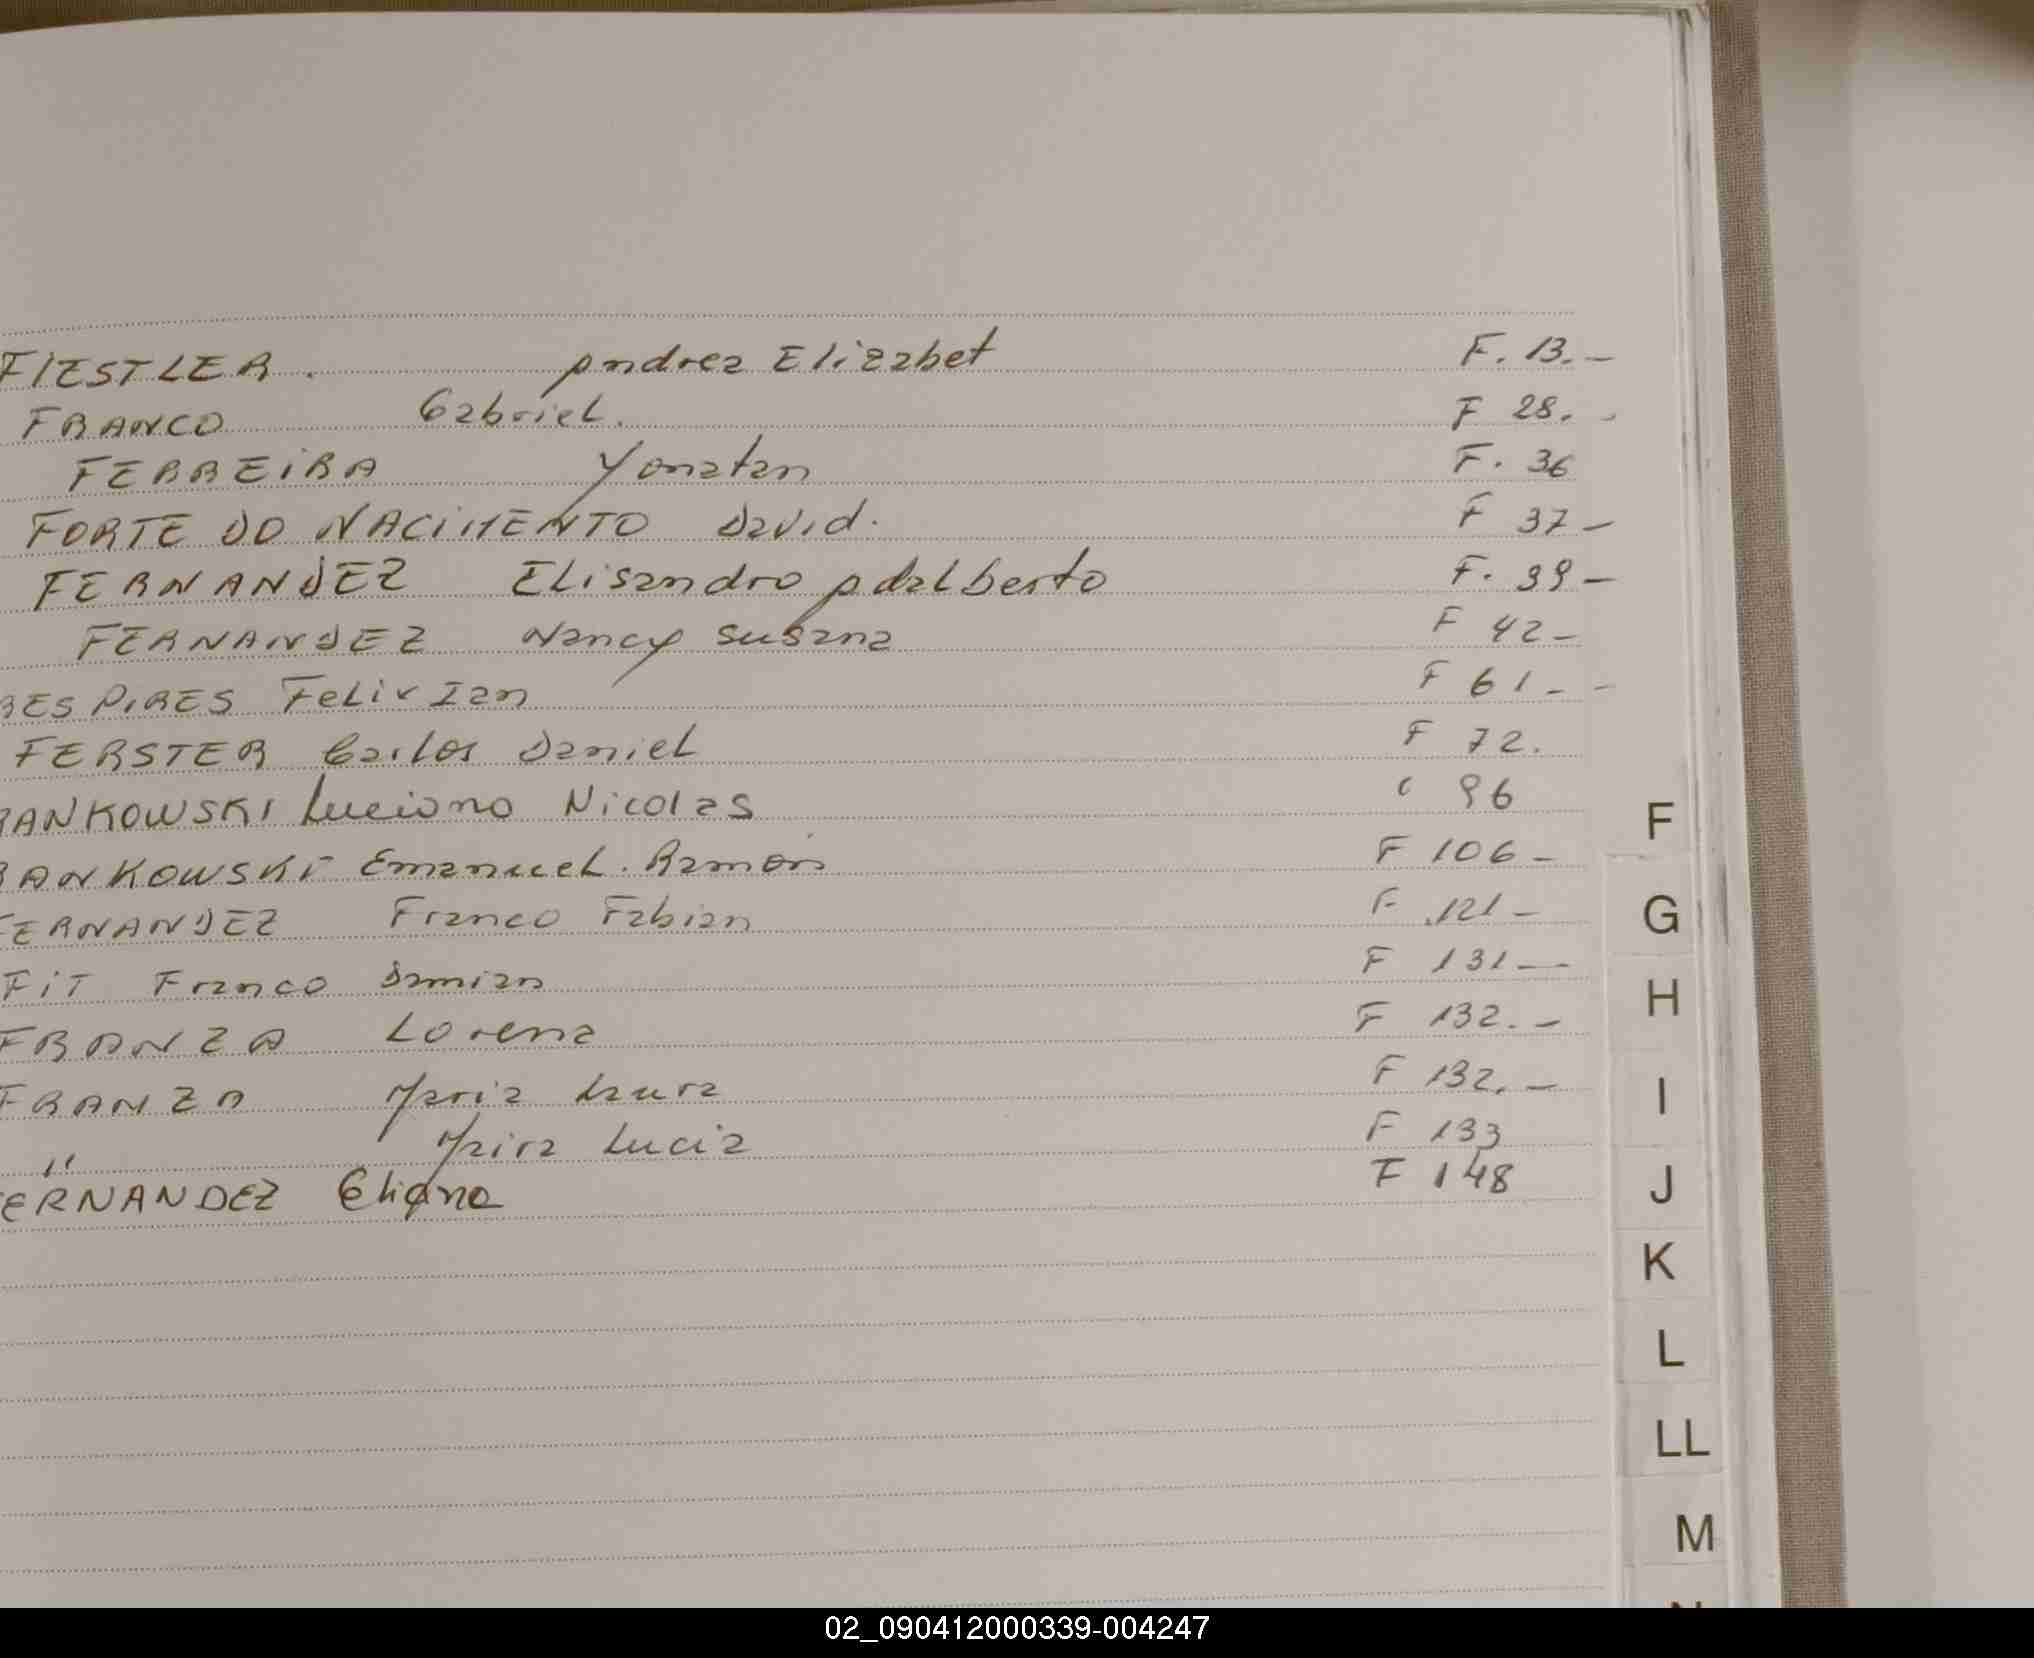 FIESTLER. Andrea Elizabet F. 13.-
FRANCO Gabriel. F 28.-
FERREIRA Yonatan F. 36
FORTE DO NACIMENTO David. F 37-
FERNANDEZ Elisandro Adalberto F. 39-
FERNANDEZ Nancy Susana F 42-
RES PIRES Felix Ian F 61--
FERSTER Carlos Daniel F 72.
RANKOWSKI Luciano Nicolas " 96
RANKOWSKI Emanuel. Ramon F 106-
FERNANDEZ Franco Fabian F 121-
FiT Franco Damian F 131-
FRANZA Lorena F 132.-
FRANZA Maria Laura F 132.-
" Maira Lucia F 133
ERNANDEZ Eliana F 148
F
G
H
I
J
K
L
LL
M
N
02_090412000339-004247